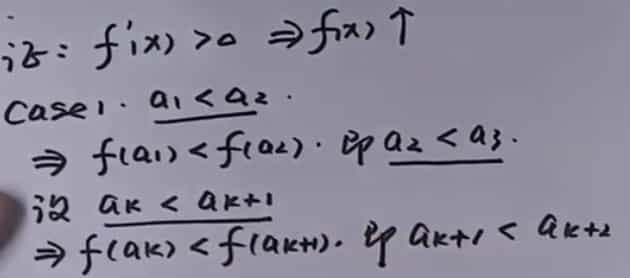 证: f'(x) > 0 ⇒ f(x) ↑
Case 1. a₁ < a₂.
⇒ f(a₁) < f(a₂). 即 a₂ < a₃.
设 aₖ < aₖ₊₁
⇒ f(aₖ) < f(aₖ₊₁). 即 aₖ₊₁ < aₖ₊₂